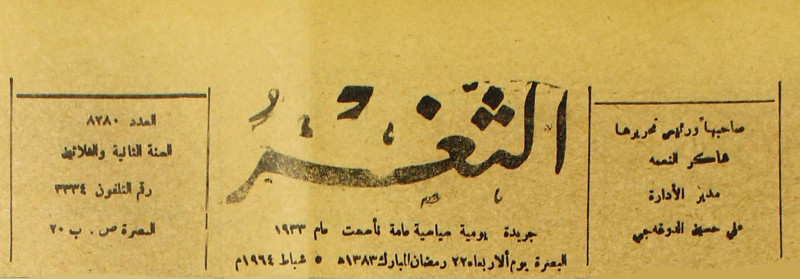 صاحبها ورئيس تحريرها
شاكر النعمه
مدير الأدارة
علي حسين
الثغر
جريدة يومية سياسية عامة تأسست عام ١٩٣٣
البصرة يوم الاربعاء ٢٢ رمضان المبارك ١٣٨٣ه ٥ شباط ١٩٦٤م
العدد ٨٢٨٠
السنة الثانية والثلاثين
رقم التلفون ٣٣٣٤
البصرة ص . ب ٢٠